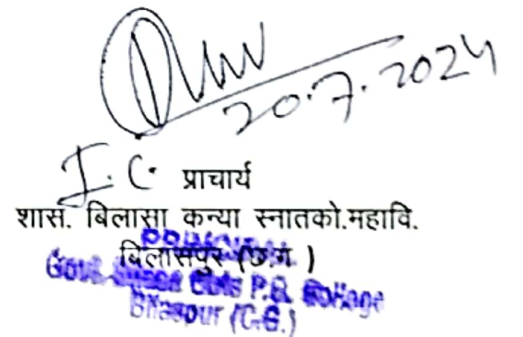 20.7.2024
I.C. प्राचार्य
शास. बिलासा कन्या स्नातको.महावि.
PRINCIPAL
बिलासपुर (छ.ग.)
Govt. Bilasa Girls P.G. College
Bilaspur (C.G.)